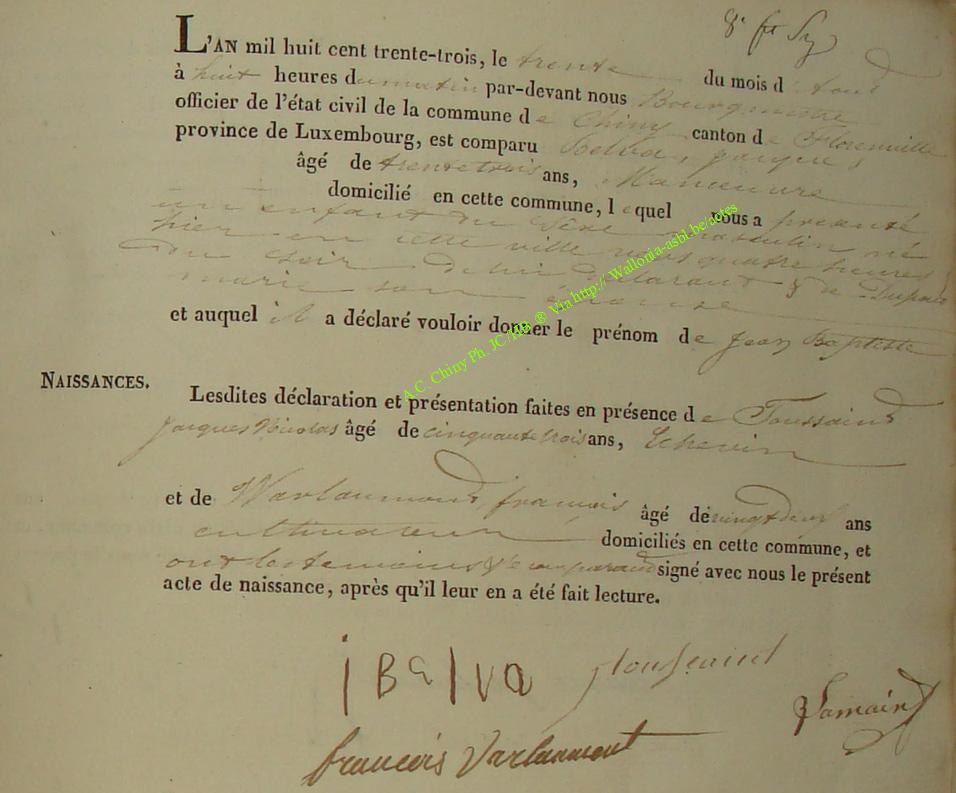 8e ft
L'AN mil huit cent trente-trois, le trente du mois d'aout
à huit heures du matin par-devant nous Bourgmestre
officier de l'état civil de la commune de Chiny canton de Florenville
province de Luxembourg, est comparu Belva, jacques
âgé de trente trois ans, Manoeuvre
domicilié en cette commune, lequel nous a presenté
un enfant du sexe masculin né
hier en cette ville vers quatre heures
du soir de lui déclarant & de Dupont
marie son épouse
et auquel il a déclaré vouloir donner le prénom de Jean Baptiste
NAISSANCES.
Lesdites déclaration et présentation faites en présence de Toussaint
Jacques Nicolas âgé de cinquante trois ans, Echevin
et de Warlaumont, francois âgé de vingt deux ans
cultivateur domiciliés en cette commune, et
ont les temoins & le comparant signé avec nous le présent
acte de naissance, après qu'il leur en a été fait lecture.
j Belva Toussaint
Lamair
francois Varlaumont
A.C. Chiny Ph. JC/HB ® Via http:// Wallonia-asbl.be/actes